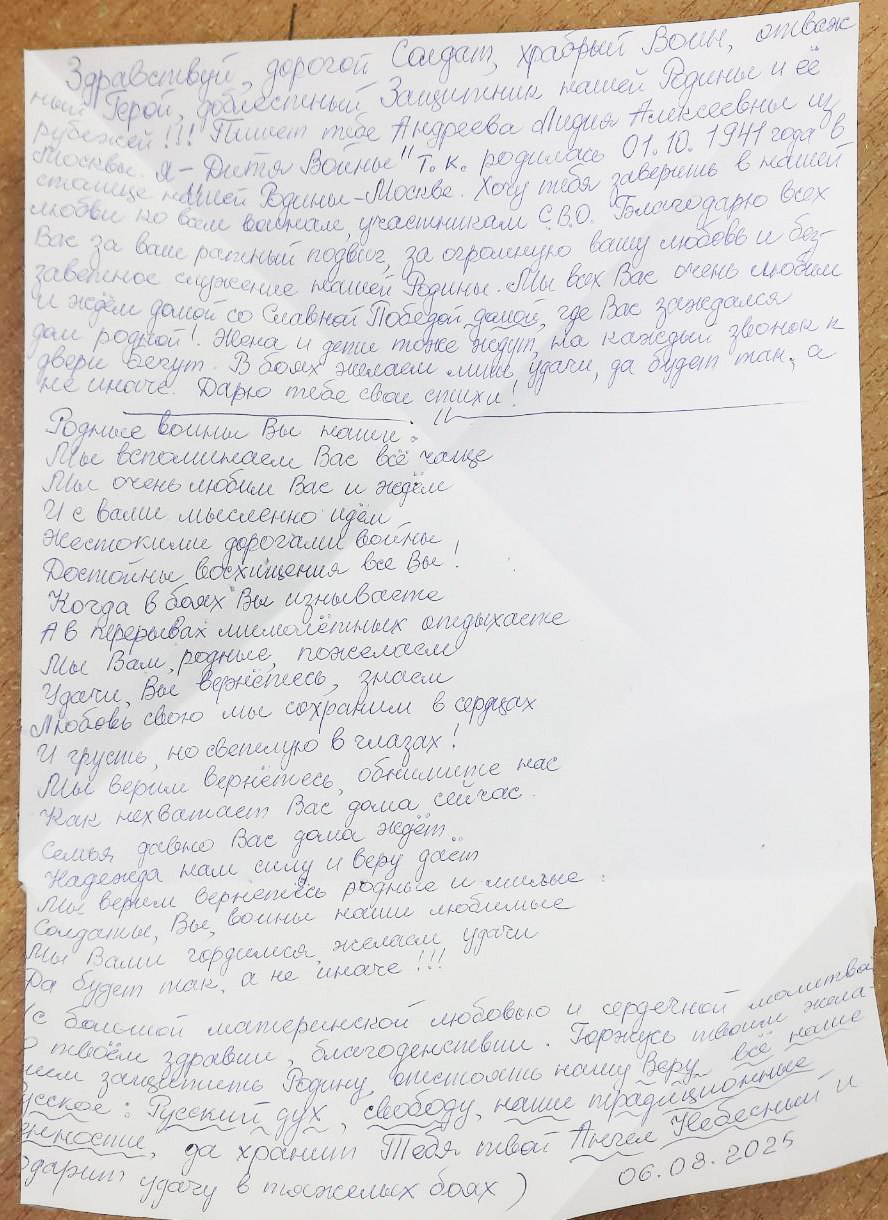 Здравствуй, дорогой Солдат, храбрый Воин, отваж
ный Герой, доблестный Защитник нашей Родины и её
рубежей!!! Пишет тебе Андреева Лидия Алексеевны из
Москвы. Я - Дитя Войны" т.к. родилась 01.10.1941 года в
столице нашей Родины - Москве. Хочу тебя заверить в нашей
любви ко всем воинам, участникам С.В.О. Благодарю всех
Вас за ваш ратный подвиг, за огромную вашу любовь и без-
заветное служение нашей Родины. Мы всех Вас очень любим
и ждём домой со Славной Победой домой, где Вас заждался
дом родной! Жена и дети тоже ждут, на каждый звонок к
двери бегут. В боях желаем лишь удачи, да будет так, а
не иначе. Дарю тебе свои стихи!
Родные воины Вы наши:
Мы вспоминаем Вас всё чаще
Мы очень любим Вас и ждём
И с вами мысленно идём
Жестокими дорогами войны
Достойны восхищения все Вы!
Когда в боях Вы изнываете
А в перерывах мимолётных отдыхаете
Мы Вам, родные, пожелаем
Удачи, Вы вернётесь, знаем
Любовь свою мы сохраним в сердцах
И грусть, но светлую в глазах!
Мы верим вернётесь, обнимите нас
Как нехватает Вас дома сейчас.
Семья давно Вас дома ждёт
Надежда нам силу и веру даёт
Мы верим вернётесь родные и милые
Солдаты, Вы, воины наши любимые
Мы Вами гордимся, желаем удачи
Да будет так, а не иначе!!!
(с большой материнской любовью и сердечной молитвой
о твоём здравии, благоденствии. Горжусь твоим жела-
нием защитить Родину, отстоять нашу Веру, всё наше
усское: Русский дух, свободу, наши традиционные
нности, да хранит Тебя твой Ангел Небесный и
одарит удачу в тяжелых боях)
06.08.2025